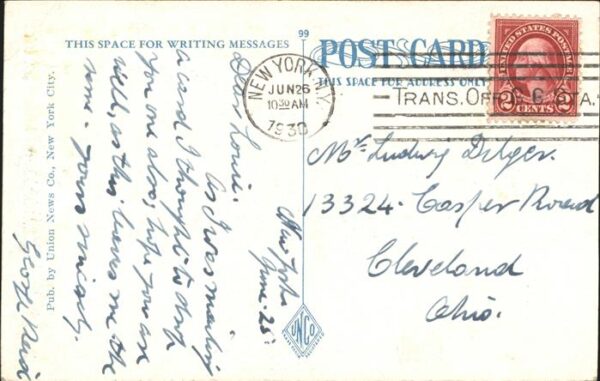 THIS SPACE FOR WRITING MESSAGES
99
POST CARD
THIS SPACE FOR ADDRESS ONLY
NEW YORK, N.Y.
JUN 26
10 30 AM
1930
TRANS. OFF. STA.
UNITED STATES POSTAGE
2 CENTS 2
Pub. by Union News Co., New York City.
New York
June. 25.
Dear Louie.
As I was mailing
a card I thought to drop
you one also, hope you are
well, as this leaves me the
same. Yours sincerely.
Geo.
Mr. Ludwig
13324. Casper Round
Cleveland
Ohio.
UNCo